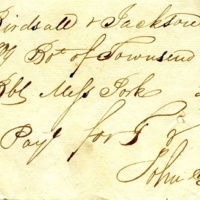 Birdsall & Jackson
Bot of Townsend
Bbl Mess Pork
Payt for T &
John